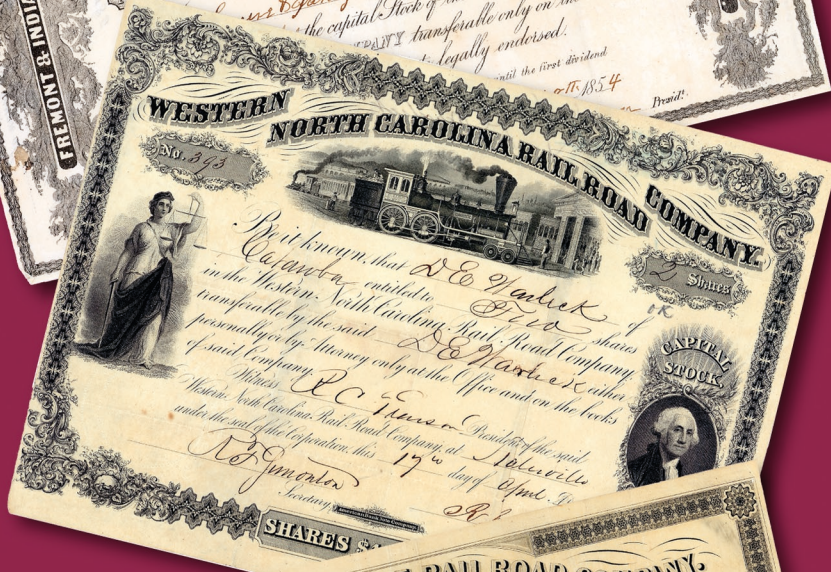 the capital Stock of the
COMPANY transferable only on the
legally endorsed.
until the first dividend
1854
Presidt.
FREMONT & INDIA
WESTERN NORTH CAROLINA RAIL ROAD COMPANY.
No. 393
2 Shares
Be it known, that D E Warlick of
Catawba entitled to Two shares
in the Western North Carolina Rail Road Company,
transferable by the said D E Warlick either
personally or by Attorney only at the Office and on the books
of said Company.
Witness R C President of the said
Western North Carolina Rail Road Company, at Statesville
under the seal of the Corporation, this 17th day of April
Secretary
American Bank Note Company
CAPITAL
STOCK.
SHARES $
RAIL ROAD COMPANY.